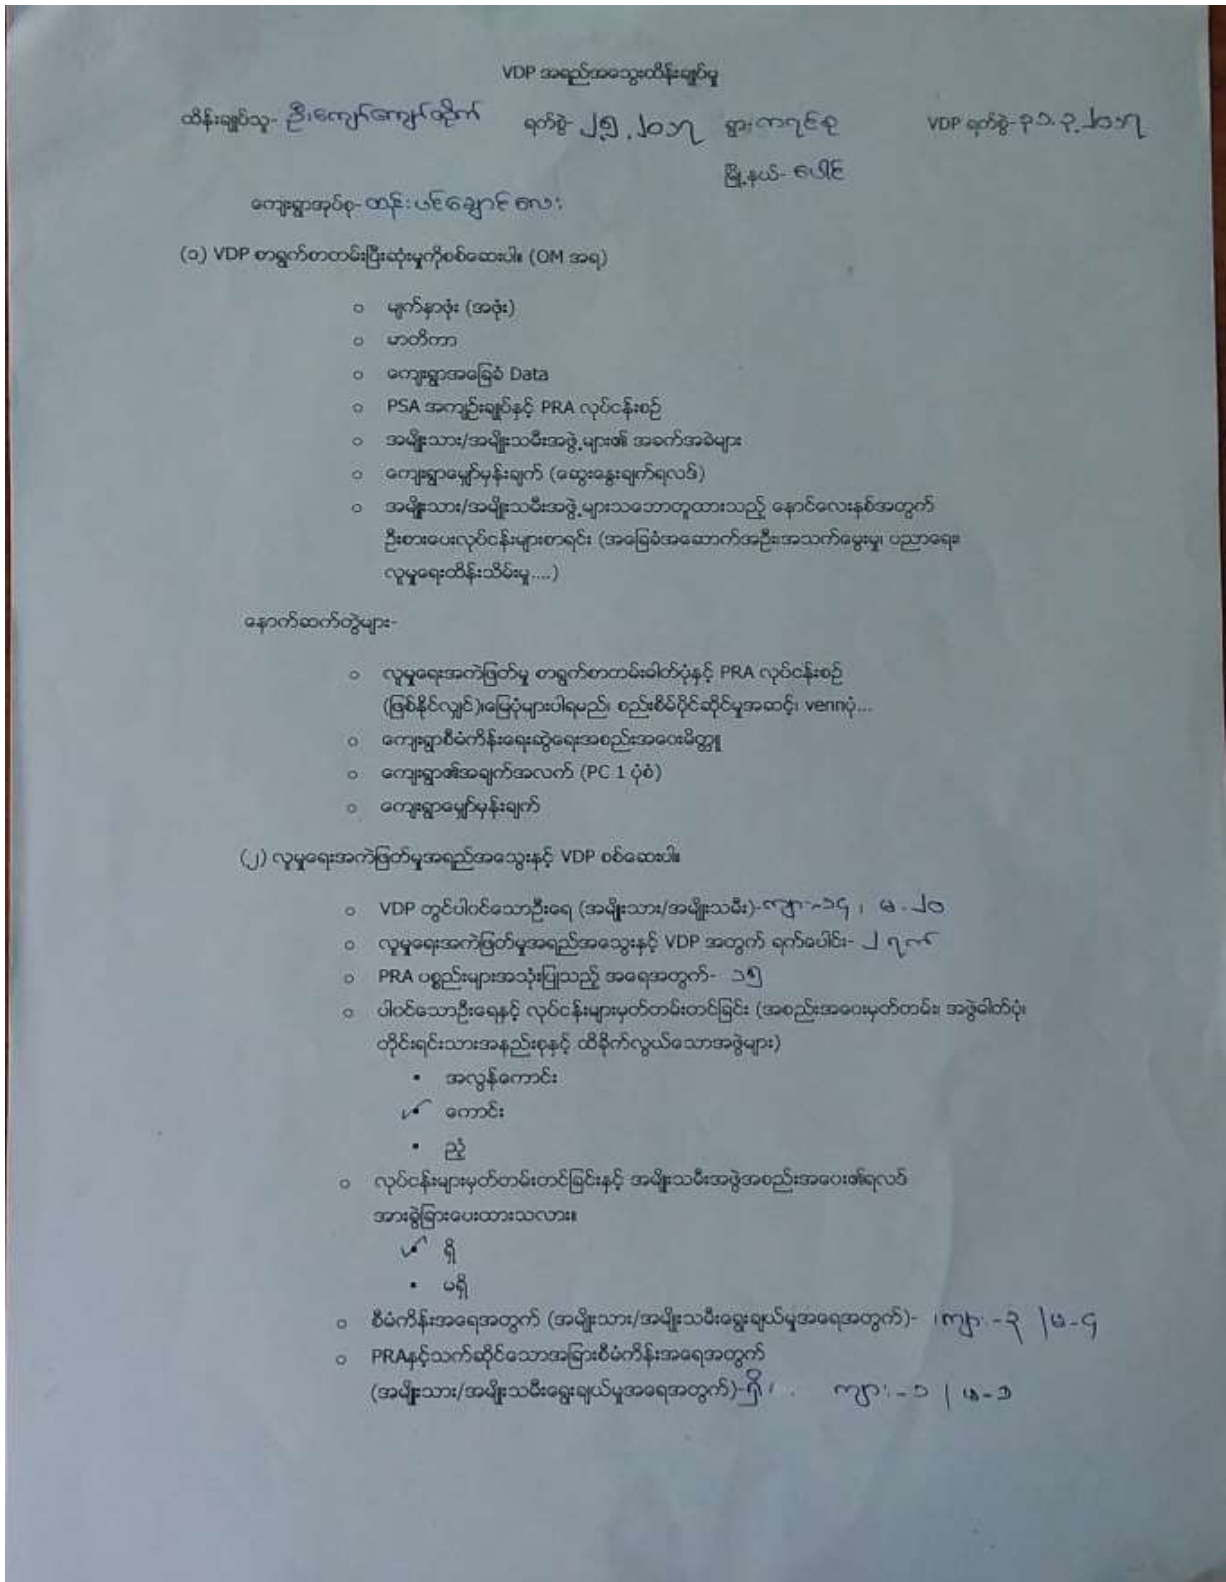 VDP အရည်အသွေးထိန်းချုပ်မှု
ထိန်းချုပ်သူ- ဦးကျော်ကျော်ထိုက် ရက်စွဲ- ၂.၅.၂၀၁၇ ရွာ- ကရင်စု VDP ရက်စွဲ- ၃၁.၃.၂၀၁၇
မြို့နယ်- ပေါင်
ကျေးရွာအုပ်စု- ထန်းပင်ချောင်လေး
(၁) VDP စာရွက်စာတမ်းပြီးဆုံးမှုကိုစစ်ဆေးပါ။ (OM အရ)
○ မျက်နှာဖုံး (အဖုံး)
○ မာတိကာ
○ ကျေးရွာအခြေခံ Data
○ PSA အကျဉ်းချုပ်နှင့် PRA လုပ်ငန်းစဉ်
○ အမျိုးသား/အမျိုးသမီးအဖွဲ့များ၏ အခက်အခဲများ
○ ကျေးရွာမျှော်မှန်းချက် (ဆွေးနွေးချက်ရလဒ်)
○ အမျိုးသား/အမျိုးသမီးအဖွဲ့များသဘောတူထားသည့် နောင်လေးနှစ်အတွက်
ဦးစားပေးလုပ်ငန်းများစာရင်း (အခြေခံအဆောက်အဦး၊အသက်မွေးမှု၊ ပညာရေး၊
လူမှုရေးထိန်းသိမ်းမှု....)
နောက်ဆက်တွဲများ-
○ လူမှုရေးအကဲဖြတ်မှု စာရွက်စာတမ်းဓါတ်ပုံနှင့် PRA လုပ်ငန်းစဉ်
(ဖြစ်နိုင်လျှင်)၊မြေပုံများပါရမည်၊ စည်းစိမ်ပိုင်ဆိုင်မှုအဆင့်၊ vennပုံ...
○ ကျေးရွာစီမံကိန်းရေးဆွဲရေးအစည်းအဝေးမိတ္တူ
○ ကျေးရွာ၏အချက်အလက် (PC 1 ပုံစံ)
○ ကျေးရွာမျှော်မှန်းချက်
(၂) လူမှုရေးအကဲဖြတ်မှုအရည်အသွေးနှင့် VDP စစ်ဆေးပါ။
○ VDP တွင်ပါဝင်သောဦးရေ (အမျိုးသား/အမျိုးသမီး)-ကျား-၁၄ ၊ မ-၂၀
○ လူမှုရေးအကဲဖြတ်မှုအရည်အသွေးနှင့် VDP အတွက် ရက်ပေါင်း- ၂ ရက်
○ PRA ပစ္စည်းများအသုံးပြုသည့် အရေအတွက်- ၁၅
○ ပါဝင်သောဦးရေနှင့် လုပ်ငန်းများမှတ်တမ်းတင်ခြင်း (အစည်းအဝေးမှတ်တမ်း၊ အဖွဲ့ဓါတ်ပုံ၊
တိုင်းရင်းသားအနည်းစုနှင့် ထိခိုက်လွယ်သောအဖွဲ့များ)
▪ အလွန်ကောင်း
✓ ကောင်း
▪ ညံ့
○ လုပ်ငန်းများမှတ်တမ်းတင်ခြင်းနှင့် အမျိုးသမီးအဖွဲ့အစည်းအဝေး၏ရလဒ်
အားခွဲခြားပေးထားသလား။
✓ ရှိ
▪ မရှိ
○ စီမံကိန်းအရေအတွက် (အမျိုးသား/အမျိုးသမီးရွေးချယ်မှုအရေအတွက်)- ကျား-၃ |မ-၄
○ PRAနှင့်သက်ဆိုင်သောအခြားစီမံကိန်းအရေအတွက်
(အမျိုးသား/အမျိုးသမီးရွေးချယ်မှုအရေအတွက်)-ရှိ၊ ကျား-၁ | မ-၁